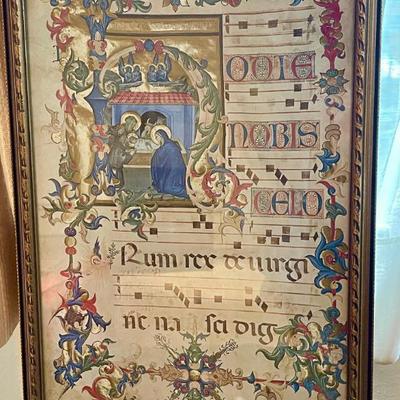 HODIE
NOBIS
CELO
Rum rex de uirgi
ne na sci dig